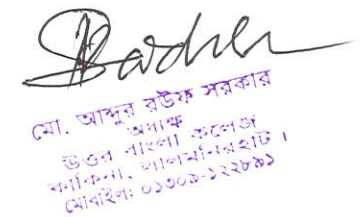 মো. আব্দুর রউফ সরকার
অধ্যক্ষ
উত্তর বাংলা কলেজ
কাকিনা, লালমনিরহাট ।
মোবাইল: ০১৩০৯-১২২৮৯১